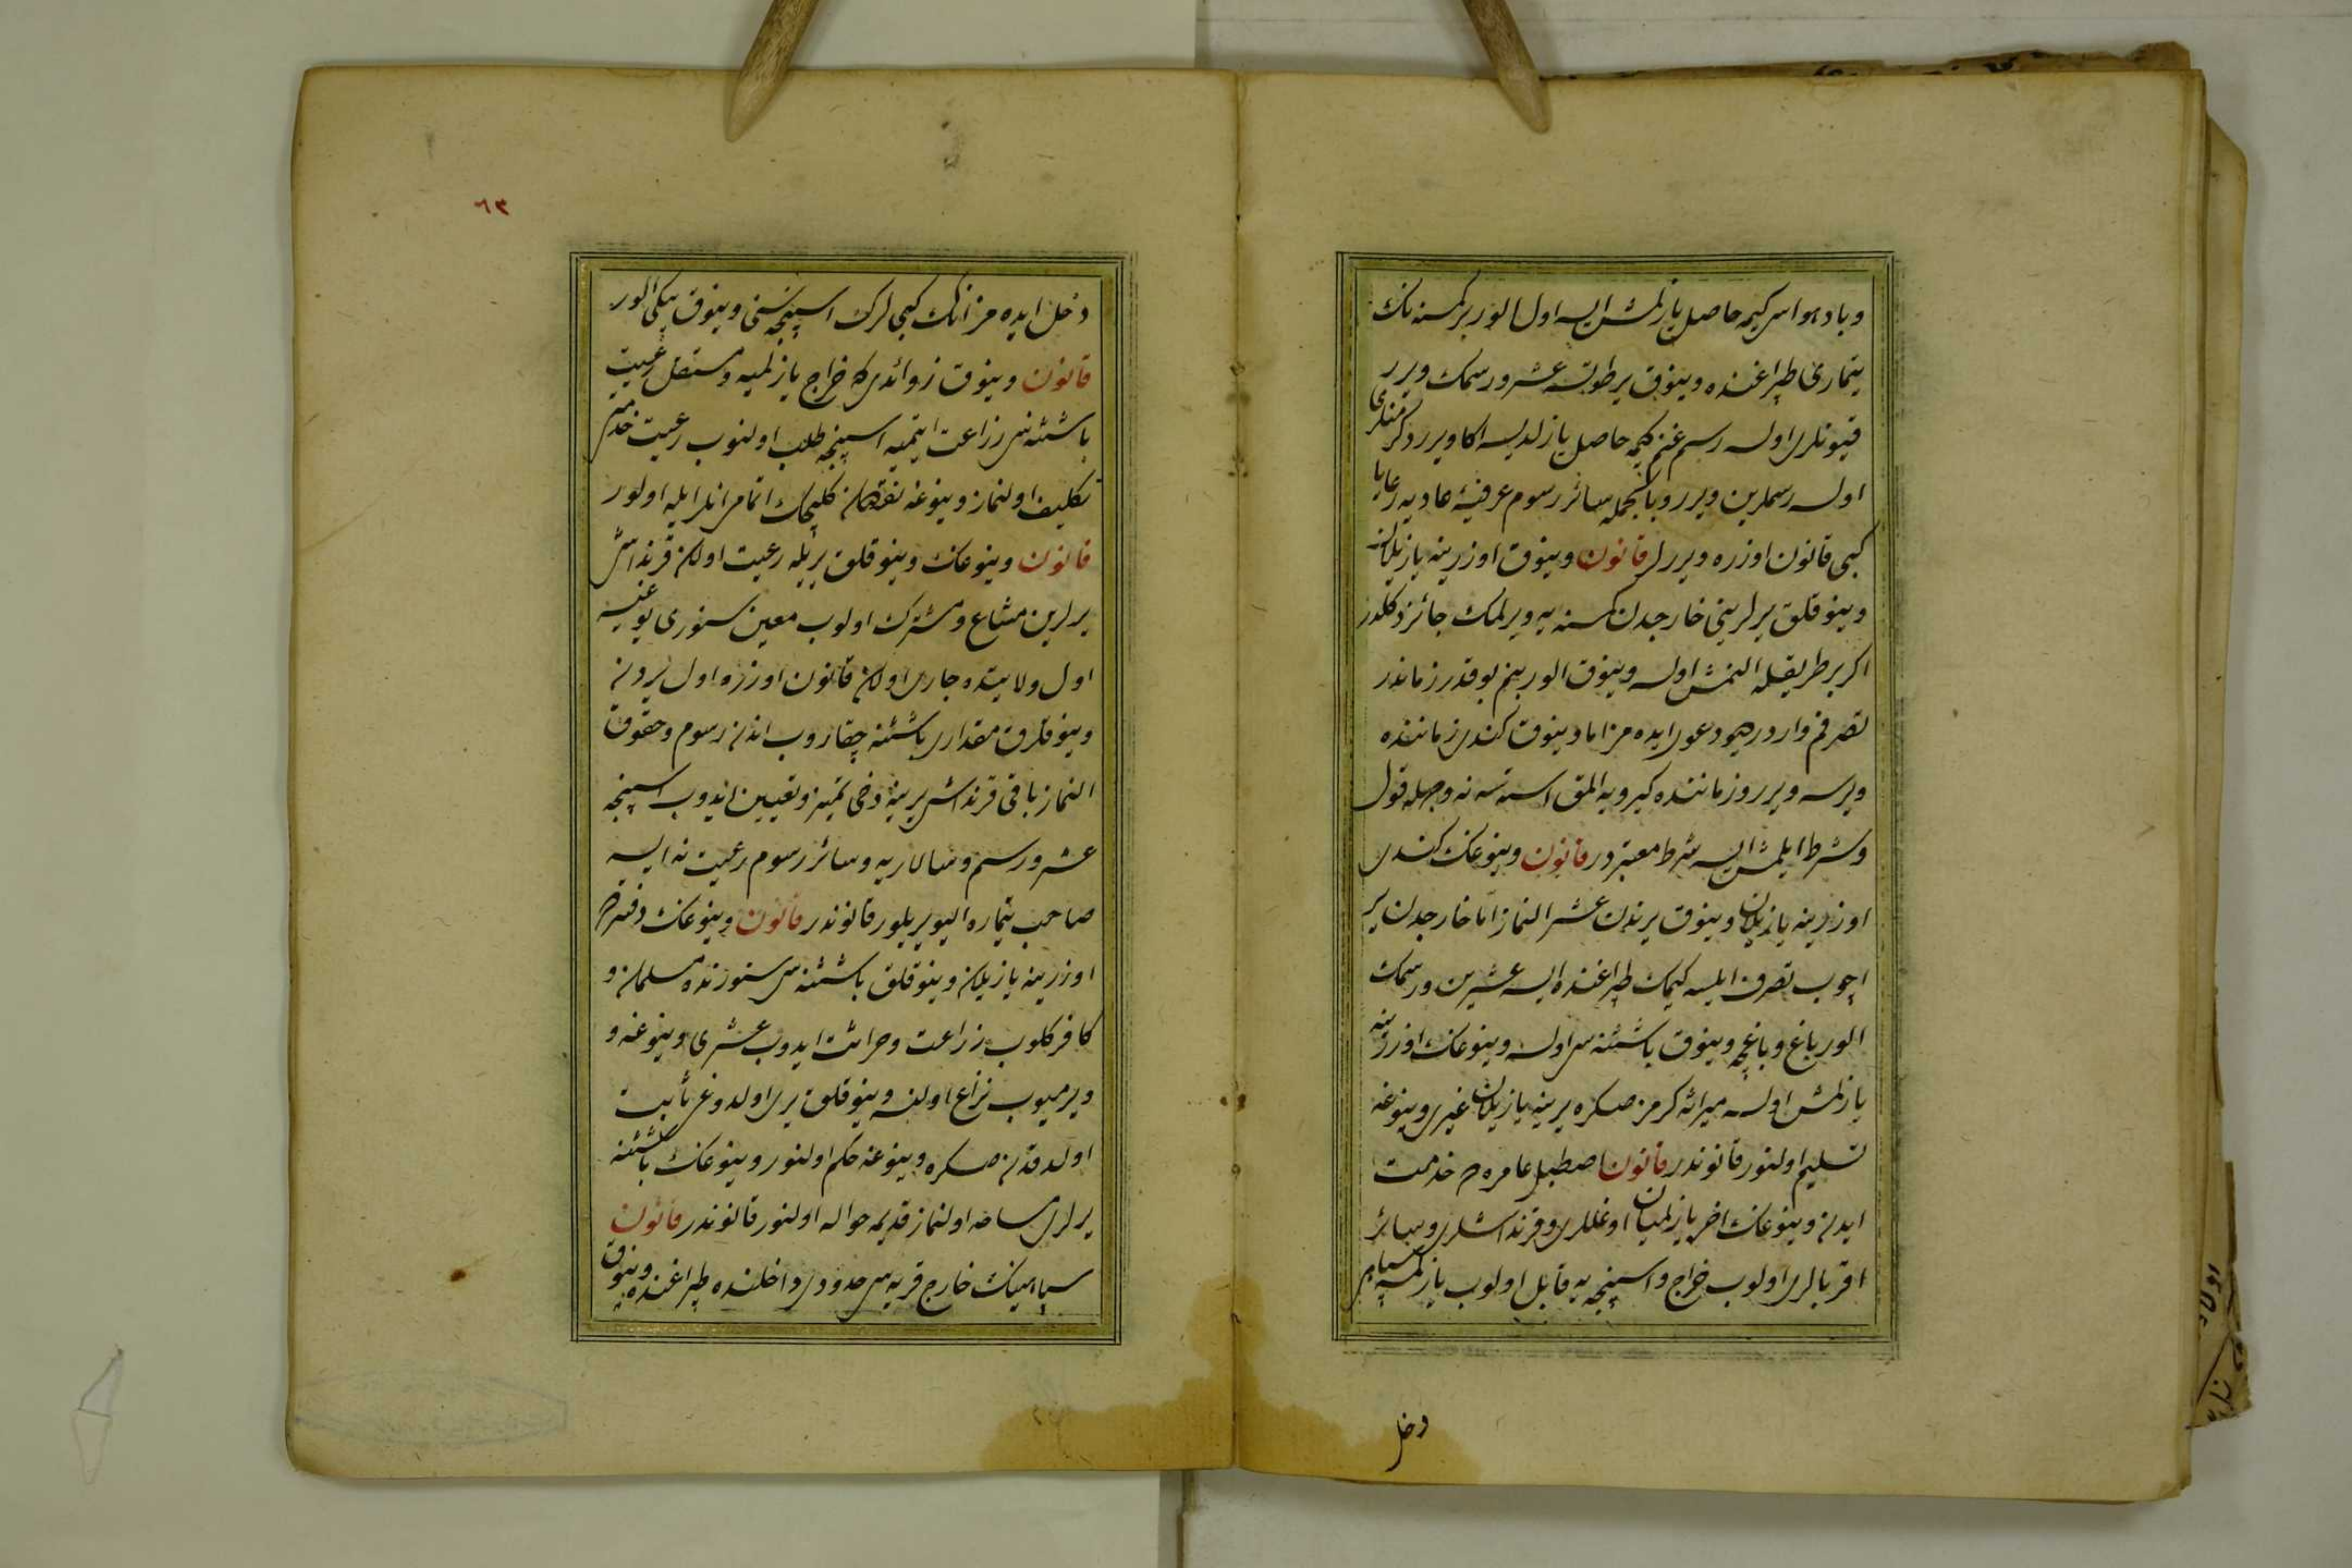 وباد هواسی کیمه حاصل یازلمش ایسه اول الور بر کسنه نك
تیماری طپراغنده وینوق یر طوتسه عشر ورسمك ویرر
قیونلری اولسه رسم غنم کیمه حاصل یازلدیسه اکا ویرر دکرمنلری
اولسه رسملرین ویرر وبالجمله سائر رسوم عرفیۀ عادیه رعایا
کبی قانون اوزره ویررلر قانون وینوق اوزرینه یازیلان
وینوقلق یرلرینی خارجدن کسنه یه ویرلمك جائز دکلدر
اکر بر طریقله النمش اولسه وینوق الور بنم بو قدر زماندر
تصرفم واردر دیو دعوی ایده مز اما وینوق کندی زماننده
ویرسه ویرر وزماننده کیرویه المق استسه نه وجهله قول
وشرط ایلمش ایسه شرط معتبردر قانون وینوغك کندی
اوزرینه یازیلان وینوق یرندن عشر النماز اما خارجدن یر
اچوب تصرف ایلسه کیمك طپراغنده ایسه عشرین ورسمك
الور باغ وباغچه وینوق باشتنه سی اولسه وینوغك اوزرینه
یازلمش اولسه میراثه کرمز صکره یرینه یازیلان غیری وینوغه
تسلیم اولنور قانوندر قانون اصطبل عامره م خدمت
ایدن وینوغك اخر یازلمیان اوغللری وقرنداشلری وسائر
اقربالری اولوب خراج واسپنجه یه قابل اولوب یازلمسه سپاهی
دخل
٦٣
دخل ایده مز انك کبی لرك اسپنجه سنی وینوق بکی الور
قانون وینوق زوائدی که خراج یازلمیه ومستقل رعیت
باشتنه سی زراعت ایتمیه اسپنجه طلب اولنوب رعیت خدمتی
تکلیف اولنماز وینوغه نقصان کلیجك اتمام انلر ایله اولور
قانون وینوغك وینوقلق یریله رعیت اولان قرنداشی
یرلرین مشاع ومشترك اولوب معین سنوری یوغیسه
اول ولایتده جاری اولان قانون اوزره اول یردن
وینوقلق مقداری باشتنه چقاروب اندن رسوم وحقوق
النماز باقی قرنداشی یرینه دخی تمیز وتعیین ایدوب اسپنجه
عشر ورسم وسالاریه وسائر رسوم رعیت نه ایسه
صاحب تیماره الیویریلور قانوندر قانون وینوغك دفترده
اوزرینه یازیلان وینوقلق باشتنه سی سنورنده مسلمان و
کافر کلوب زراعت وحراثت ایدوب عشری وینوغه و
ویرمیوب نزاع اولنسه وینوقلق یری اولدوغی ثابت
اولدقدن صکره وینوغه حکم اولنور وینوغك باشتنه
یرلری مساحه اولنماز قدیمه حواله اولنور قانوندر قانون
سپاهینك خارج قریه سی حدودی داخلنده طپراغنده وینوق